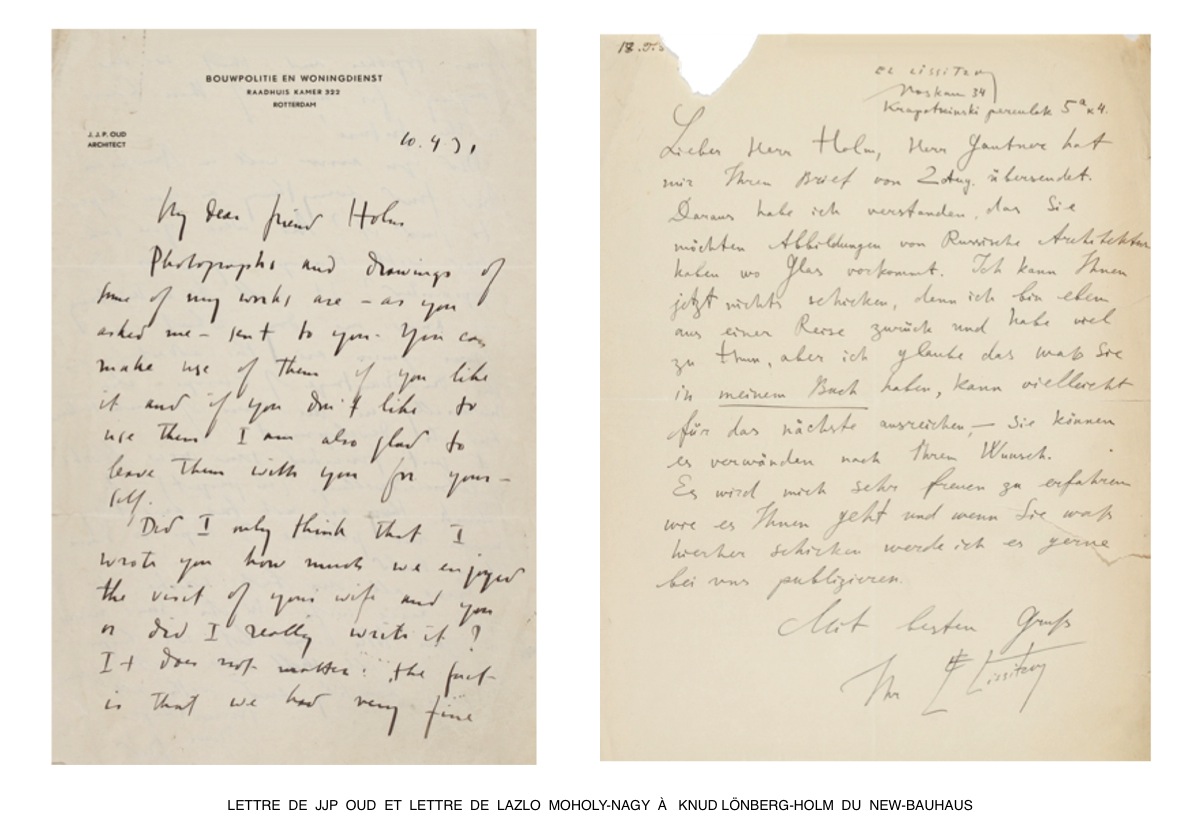 BOUWPOLITIE EN WONINGDIENST
RAADHUIS KAMER 322
ROTTERDAM
J. J. P. OUD
ARCHITECT
10.4 31
My dear friend Holm
Photographs and drawings of
some of my works are – as you
asked me – sent to you. You can
make use of them if you like
it and if you don't like to
use them I am also glad to
leave them with you for your-
self.
Did I only think that I
wrote you how much we enjoyed
the visit of your wife and you
or did I really write it ?
It does not matter : the fact
is that we had very fine
El Lissitzky
Moskau 34
Kropotkinski pereulok 5a
Lieber Herr Holm, Herr Gantner hat
mir Ihren Brief von 2 Aug. übersendet.
Daraus habe ich verstanden, das Sie
möchten Abbildungen von Russische Architektur
haben wo Glas vorkommt. Ich kann Ihnen
jetzt nichts schicken, denn ich bin eben
aus einer Reise zurück und habe viel
zu thun, aber ich glaube das waß Sie
in meinem Buch haben, kann vielleicht
für das nächste ausreichen, — Sie können
es verwänden nach Ihrem Wunsch.
Es wird mich sehr freuen zu erfahren
wie es Ihnen geht und wenn Sie waß
hierher schicken werde ich es gerne
bei uns publizieren.
Mit besten Gruß
Ihr El Lissitzky
LETTRE DE JJP OUD ET LETTRE DE LAZLO MOHOLY-NAGY À KNUD LÖNBERG-HOLM DU NEW-BAUHAUS